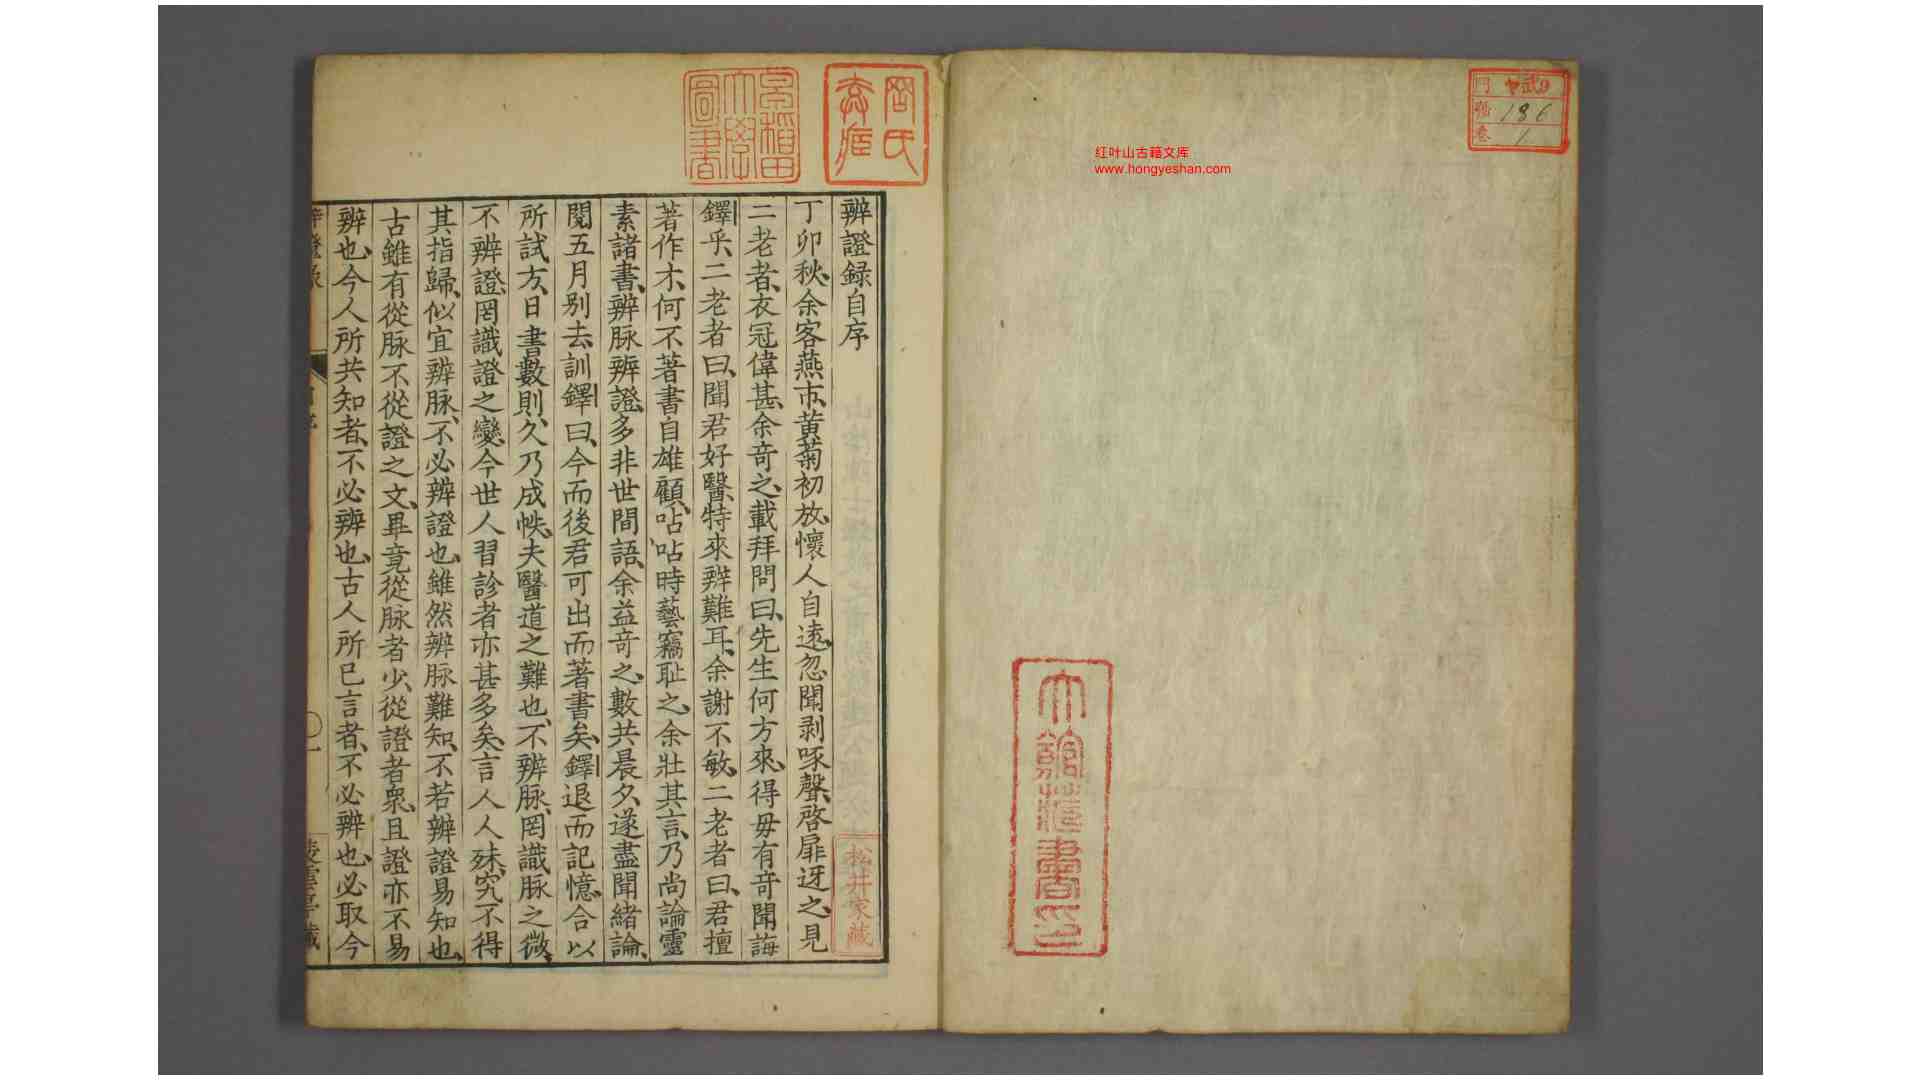 門 ヤ武9
號 186
卷 1
红叶山古籍文库
www.hongyeshan.com
早稻田大學圖書
辨證録自序
松井家藏
丁卯秋、余客燕市、黃菊初放、懷人自遠、忽聞剥啄聲、啓扉迓之、見
二老者、衣冠偉甚、余奇之、載拜問曰、先生何方來、得毋有奇聞誨
鐸乎、二老者曰、聞君好醫、特來辨難耳、余謝不敏、二老者曰、君擅
著作才、何不著書自雄、顧呫呫時藝、竊恥之、余壯其言、乃尚論靈
素諸書、辨脉辨證、多非世間語、余益奇之、數共晨夕、遂盡聞緒論、
閱五月别去、訓鐸曰、今而後君可出而著書矣、鐸退而記憶、合以
所試方、日書數則、久乃成帙、夫醫道之難也、不辨脉、罔識脉之微、
不辨證、罔識證之變、今世人習診者亦甚多矣、言人人殊、究不得
其指歸、似宜辨脉、不必辨證也、雖然辨脉難知、不若辨證易知也、
古雖有從脉不從證之文、畢竟從脉者少、從證者衆、且證亦不易
辨也、今人所共知者、不必辨也、古人所已言者、不必辨也、必取今